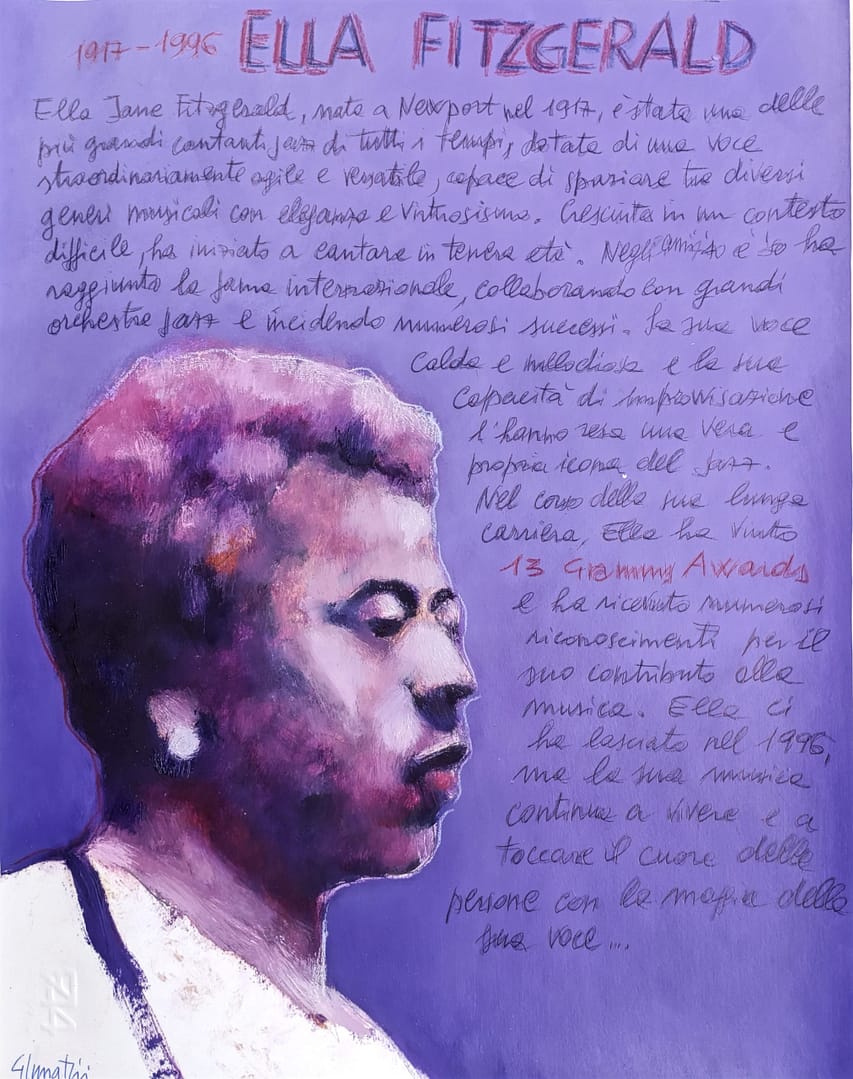 1917-1996 ELLA FITZGERALD
Ella Jane Fitzgerald, nata a Newport nel 1917, è stata una delle
più grandi cantanti jazz di tutti i tempi, dotata di una voce
straordinariamente agile e versatile, capace di spaziare tra diversi
generi musicali con eleganza e virtuosismo. Cresciuta in un contesto
difficile, ha iniziato a cantare in tenera età. Negli anni '40 e '50 ha
raggiunto la fama internazionale, collaborando con grandi
orchestre jazz e incidendo numerosi successi. La sua voce
calda e melodiosa e la sua
capacità di improvvisazione
l'hanno resa una vera e
propria icona del jazz.
Nel corso della sua lunga
carriera, Ella ha vinto
13 Grammy Awards
e ha ricevuto numerosi
riconoscimenti per il
suo contributo alla
musica. Ella ci
ha lasciato nel 1996,
ma la sua musica
continua a vivere e a
toccare il cuore delle
persone con la magia della
sua voce...